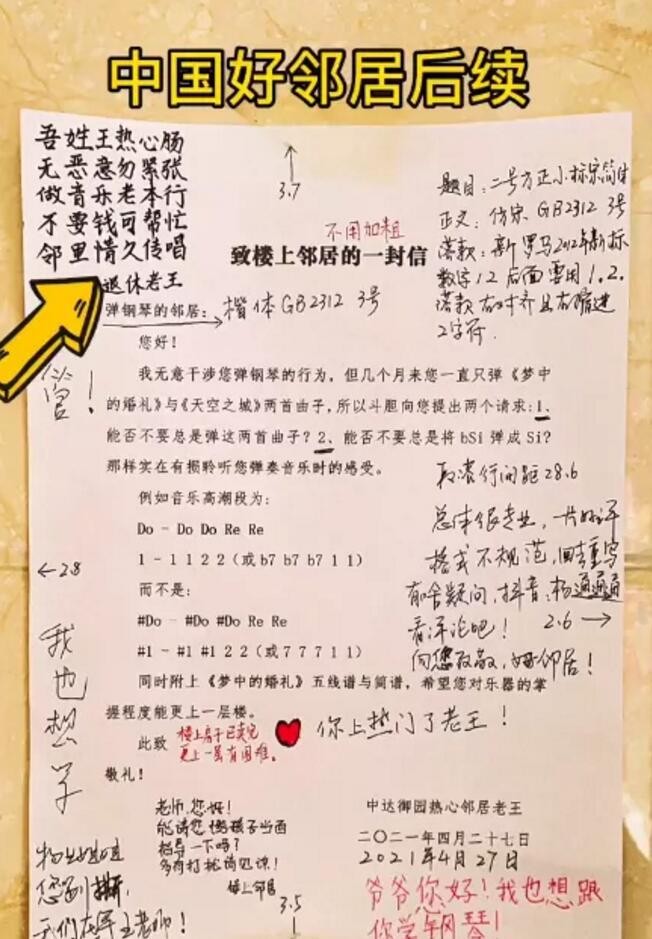 中国好邻居后续
吾姓王热心肠
无恶意勿紧张
做音乐老本行
不要钱可帮忙
邻里情久传唱
退休老王
3.7
题目：二号方正小标宋简体
正文：仿宋 GB2312 3号
落款：新罗马2012年新标
数字12后面要用1.2.
落款右对齐且右缩进
2字符.
不用加粗
致楼上邻居的一封信
弹钢琴的邻居：
楷体GB2312 3号
您好！
我无意干涉您弹钢琴的行为，但几个月来您一直只弹《梦中
的婚礼》与《天空之城》两首曲子，所以斗胆向您提出两个请求：1、
能否不要总是弹这两首曲子？2、能否不要总是将bSi弹成Si？
那样实在有损聆听您弹奏音乐时的感受。
例如音乐高潮段为：
Do - Do Do Re Re
1 - 1 1 2 2（或b7 b7 b7 1 1）
而不是：
#Do - #Do #Do Re Re
#1 - #1 #1 2 2（或7 7 7 1 1）
同时附上《梦中的婚礼》五线谱与简谱，希望您对乐器的掌
握程度能更上一层楼。
此致
敬礼！
楼上房子已卖完
更上一层有困难。
行间距28.6
总体很专业，一片好评
格式不规范，回去重写
有啥疑问，抖音：杨通通通
看评论吧！
2.6
向您致敬，好邻居！
←28
我也想学
你上热门了老王！
老师，您好！
能请您给孩子当面
指导一下吗？
多有打扰请见谅！
楼上邻居
中达御园热心邻居老王
二〇二一年四月二十七日
2021年4月27日
爷爷你好！我也想跟
你学钢琴！
3.5